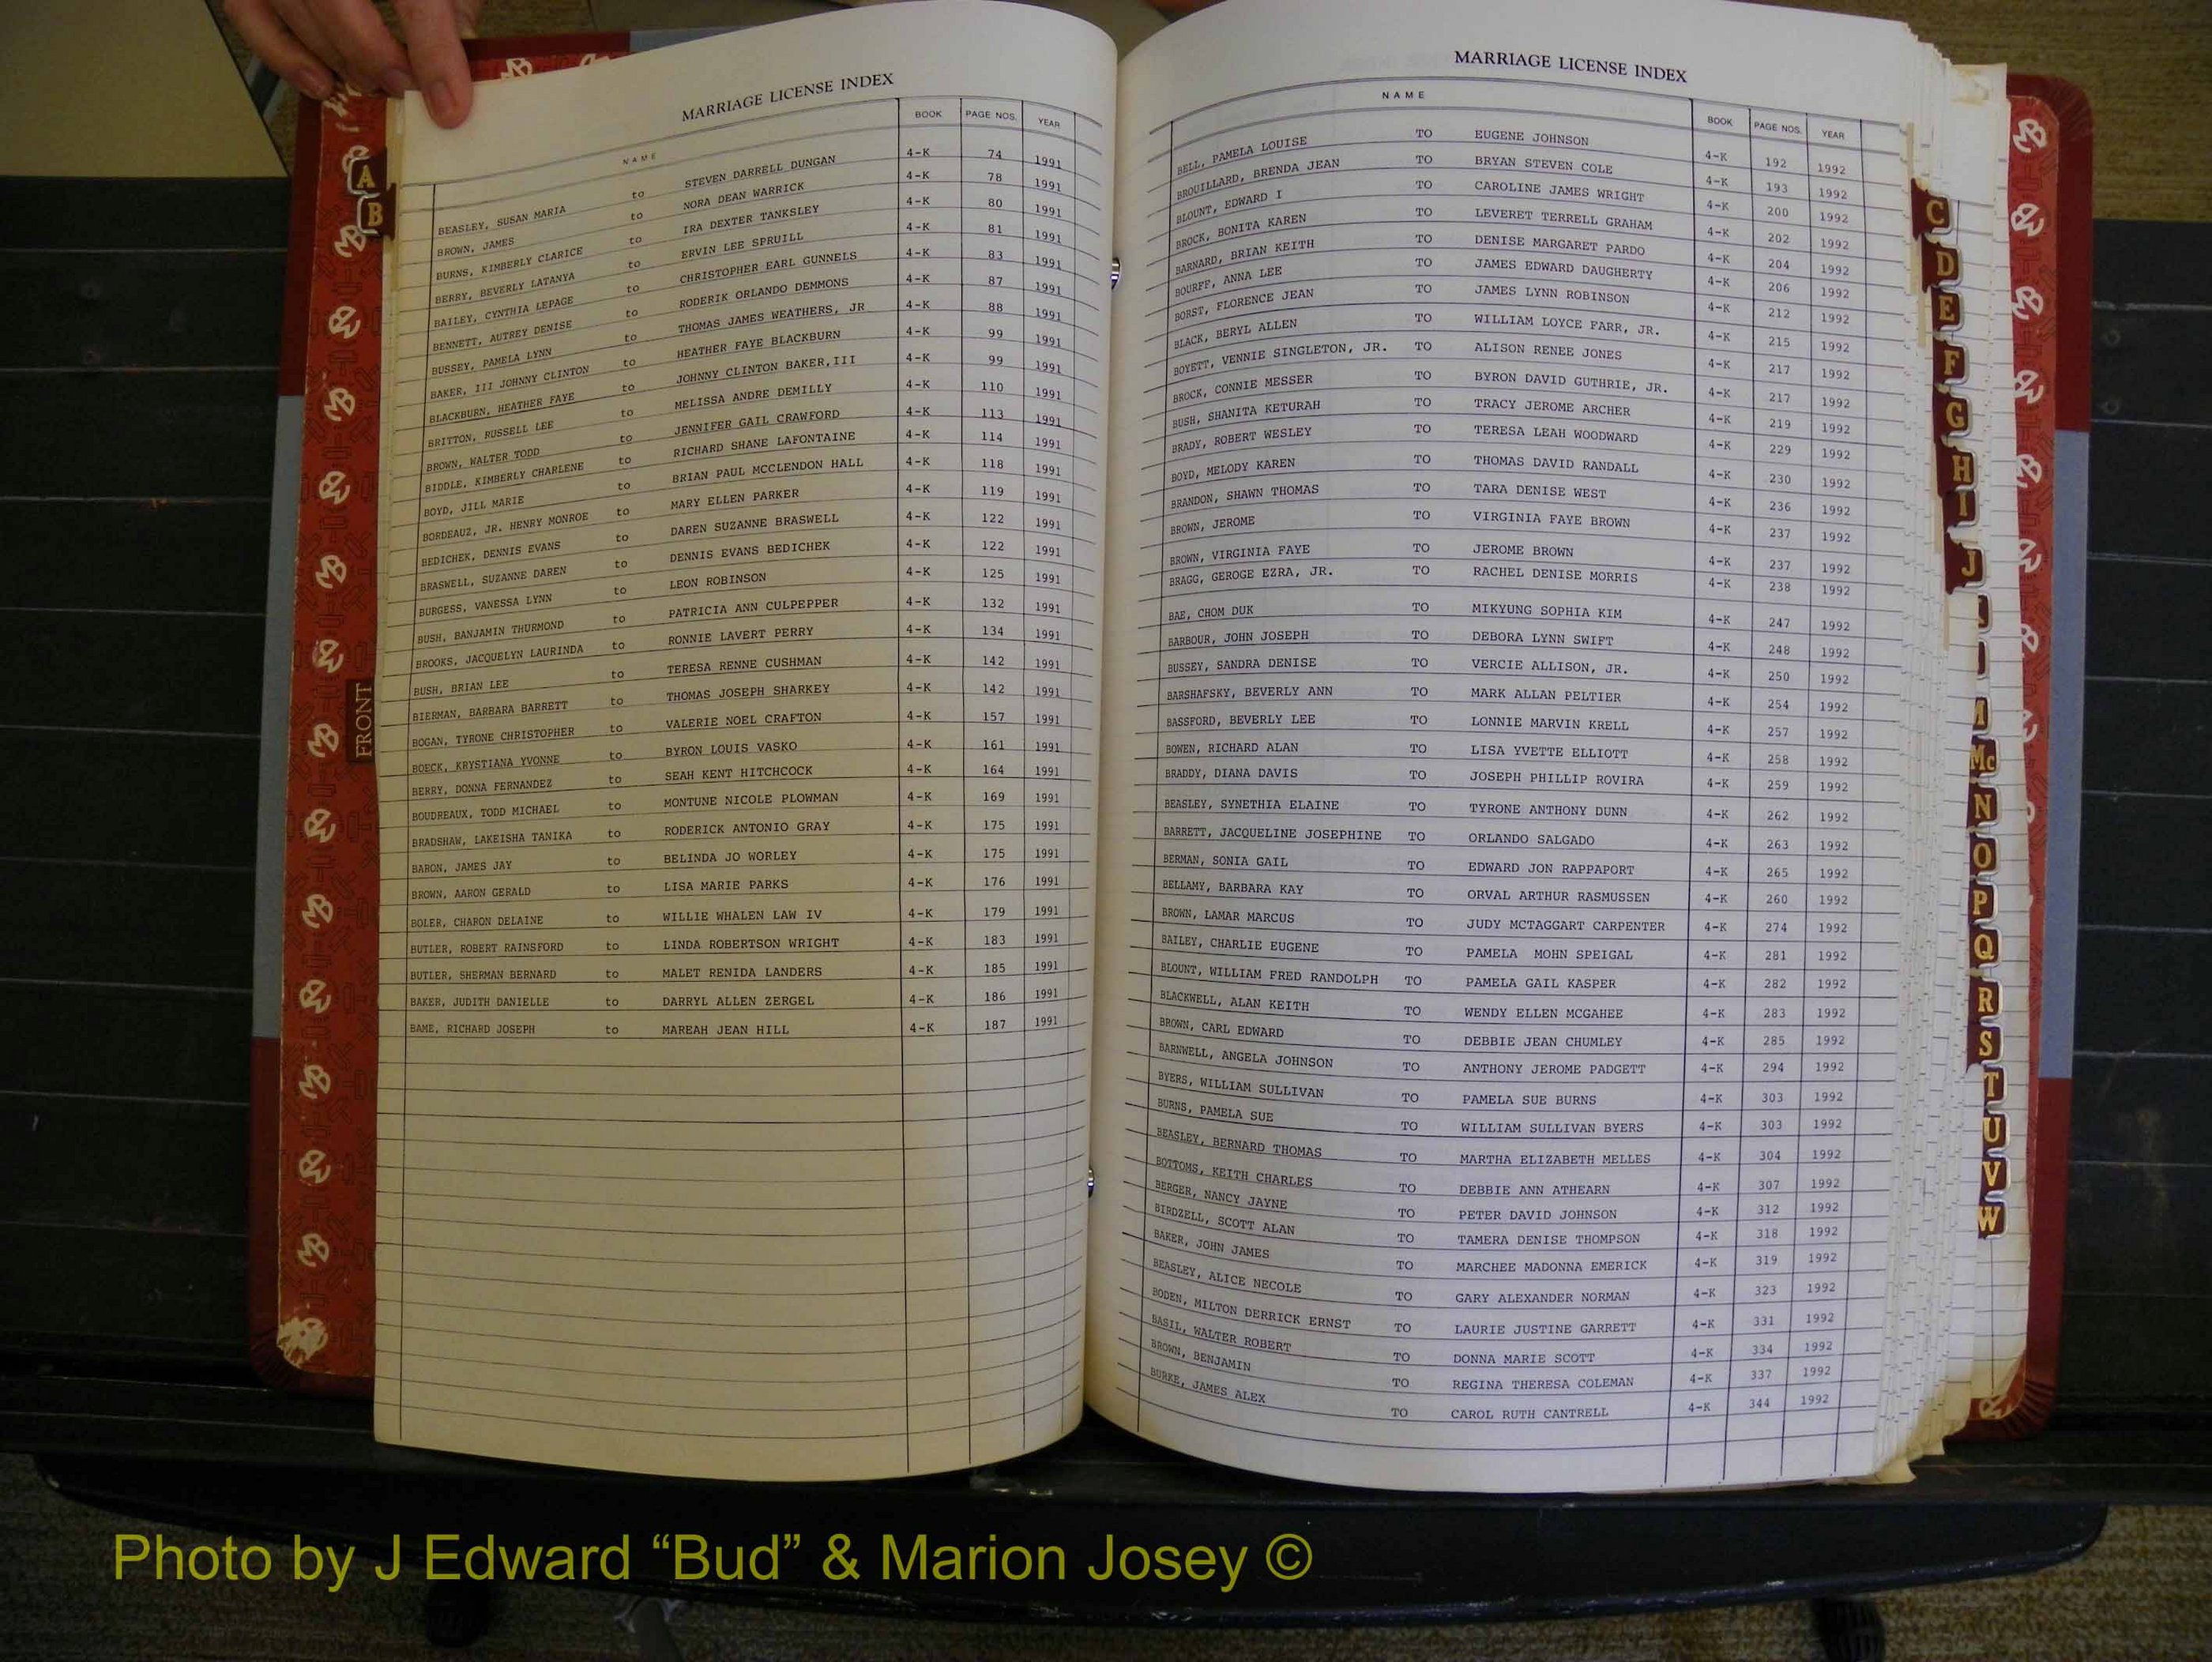 MARRIAGE LICENSE INDEX
NAME BOOK PAGE NOS. YEAR
BEASLEY, SUSAN MARIA to STEVEN DARRELL DUNGAN 4-K 74 1991
BROWN, JAMES to NORA DEAN WARRICK 4-K 78 1991
BURNS, KIMBERLY CLARICE to IRA DEXTER TANKSLEY 4-K 80 1991
BERRY, BEVERLY LATANYA to ERVIN LEE SPRUILL 4-K 81 1991
BAILEY, CYNTHIA LEPAGE to CHRISTOPHER EARL GUNNELS 4-K 83 1991
BENNETT, AUTREY DENISE to RODERIK ORLANDO DEMMONS 4-K 87 1991
BUSSEY, PAMELA LYNN to THOMAS JAMES WEATHERS, JR 4-K 88 1991
BAKER, III JOHNNY CLINTON to HEATHER FAYE BLACKBURN 4-K 99 1991
BLACKBURN, HEATHER FAYE to JOHNNY CLINTON BAKER,III 4-K 99 1991
BRITTON, RUSSELL LEE to MELISSA ANDRE DEMILLY 4-K 110 1991
BROWN, WALTER TODD to JENNIFER GAIL CRAWFORD 4-K 113 1991
BIDDLE, KIMBERLY CHARLENE to RICHARD SHANE LAFONTAINE 4-K 114 1991
BOYD, JILL MARIE to BRIAN PAUL MCCLENDON HALL 4-K 118 1991
BORDEAUZ, JR. HENRY MONROE to MARY ELLEN PARKER 4-K 119 1991
BEDICHEK, DENNIS EVANS to DAREN SUZANNE BRASWELL 4-K 122 1991
BRASWELL, SUZANNE DAREN to DENNIS EVANS BEDICHEK 4-K 122 1991
BURGESS, VANESSA LYNN to LEON ROBINSON 4-K 125 1991
BUSH, BANJAMIN THURMOND to PATRICIA ANN CULPEPPER 4-K 132 1991
BROOKS, JACQUELYN LAURINDA to RONNIE LAVERT PERRY 4-K 134 1991
BUSH, BRIAN LEE to TERESA RENNE CUSHMAN 4-K 142 1991
BIERMAN, BARBARA BARRETT to THOMAS JOSEPH SHARKEY 4-K 142 1991
BOGAN, TYRONE CHRISTOPHER to VALERIE NOEL CRAFTON 4-K 157 1991
BOECK, KRYSTIANA YVONNE to BYRON LOUIS VASKO 4-K 161 1991
BERRY, DONNA FERNANDEZ to SEAH KENT HITCHCOCK 4-K 164 1991
BOUDREAUX, TODD MICHAEL to MONTUNE NICOLE PLOWMAN 4-K 169 1991
BRADSHAW, LAKEISHA TANIKA to RODERICK ANTONIO GRAY 4-K 175 1991
BARON, JAMES JAY to BELINDA JO WORLEY 4-K 175 1991
BROWN, AARON GERALD to LISA MARIE PARKS 4-K 176 1991
BOLER, CHARON DELAINE to WILLIE WHALEN LAW IV 4-K 179 1991
BUTLER, ROBERT RAINSFORD to LINDA ROBERTSON WRIGHT 4-K 183 1991
BUTLER, SHERMAN BERNARD to MALET RENIDA LANDERS 4-K 185 1991
BAKER, JUDITH DANIELLE to DARRYL ALLEN ZERGEL 4-K 186 1991
BAME, RICHARD JOSEPH to MAREAH JEAN HILL 4-K 187 1991
A
B
FRONT
MARRIAGE LICENSE INDEX
NAME BOOK PAGE NOS. YEAR
BELL, PAMELA LOUISE TO EUGENE JOHNSON 4-K 192 1992
BROUILLARD, BRENDA JEAN TO BRYAN STEVEN COLE 4-K 193 1992
BLOUNT, EDWARD I TO CAROLINE JAMES WRIGHT 4-K 200 1992
BROCK, BONITA KAREN TO LEVERET TERRELL GRAHAM 4-K 202 1992
BARNARD, BRIAN KEITH TO DENISE MARGARET PARDO 4-K 204 1992
BOURFF, ANNA LEE TO JAMES EDWARD DAUGHERTY 4-K 206 1992
BORST, FLORENCE JEAN TO JAMES LYNN ROBINSON 4-K 212 1992
BLACK, BERYL ALLEN TO WILLIAM LOYCE FARR, JR. 4-K 215 1992
BOYETT, VENNIE SINGLETON, JR. TO ALISON RENEE JONES 4-K 217 1992
BROCK, CONNIE MESSER TO BYRON DAVID GUTHRIE, JR. 4-K 217 1992
BUSH, SHANITA KETURAH TO TRACY JEROME ARCHER 4-K 219 1992
BRADY, ROBERT WESLEY TO TERESA LEAH WOODWARD 4-K 229 1992
BOYD, MELODY KAREN TO THOMAS DAVID RANDALL 4-K 230 1992
BRANDON, SHAWN THOMAS TO TARA DENISE WEST 4-K 236 1992
BROWN, JEROME TO VIRGINIA FAYE BROWN 4-K 237 1992
BROWN, VIRGINIA FAYE TO JEROME BROWN 4-K 237 1992
BRAGG, GEROGE EZRA, JR. TO RACHEL DENISE MORRIS 4-K 238 1992
BAE, CHOM DUK TO MIKYUNG SOPHIA KIM 4-K 247 1992
BARBOUR, JOHN JOSEPH TO DEBORA LYNN SWIFT 4-K 248 1992
BUSSEY, SANDRA DENISE TO VERCIE ALLISON, JR. 4-K 250 1992
BARSHAFSKY, BEVERLY ANN TO MARK ALLAN PELTIER 4-K 254 1992
BASSFORD, BEVERLY LEE TO LONNIE MARVIN KRELL 4-K 257 1992
BOWEN, RICHARD ALAN TO LISA YVETTE ELLIOTT 4-K 258 1992
BRADDY, DIANA DAVIS TO JOSEPH PHILLIP ROVIRA 4-K 259 1992
BEASLEY, SYNETHIA ELAINE TO TYRONE ANTHONY DUNN 4-K 262 1992
BARRETT, JACQUELINE JOSEPHINE TO ORLANDO SALGADO 4-K 263 1992
BERMAN, SONIA GAIL TO EDWARD JON RAPPAPORT 4-K 265 1992
BELLAMY, BARBARA KAY TO ORVAL ARTHUR RASMUSSEN 4-K 260 1992
BROWN, LAMAR MARCUS TO JUDY MCTAGGART CARPENTER 4-K 274 1992
BAILEY, CHARLIE EUGENE TO PAMELA MOHN SPEIGAL 4-K 281 1992
BLOUNT, WILLIAM FRED RANDOLPH TO PAMELA GAIL KASPER 4-K 282 1992
BLACKWELL, ALAN KEITH TO WENDY ELLEN MCGAHEE 4-K 283 1992
BROWN, CARL EDWARD TO DEBBIE JEAN CHUMLEY 4-K 285 1992
BARNWELL, ANGELA JOHNSON TO ANTHONY JEROME PADGETT 4-K 294 1992
BYERS, WILLIAM SULLIVAN TO PAMELA SUE BURNS 4-K 303 1992
BURNS, PAMELA SUE TO WILLIAM SULLIVAN BYERS 4-K 303 1992
BEASLEY, BERNARD THOMAS TO MARTHA ELIZABETH MELLES 4-K 304 1992
BOTTOMS, KEITH CHARLES TO DEBBIE ANN ATHEARN 4-K 307 1992
BERGER, NANCY JAYNE TO PETER DAVID JOHNSON 4-K 312 1992
BIRDZELL, SCOTT ALAN TO TAMERA DENISE THOMPSON 4-K 318 1992
BAKER, JOHN JAMES TO MARCHEE MADONNA EMERICK 4-K 319 1992
BEASLEY, ALICE NECOLE TO GARY ALEXANDER NORMAN 4-K 323 1992
BODEN, MILTON DERRICK ERNST TO LAURIE JUSTINE GARRETT 4-K 331 1992
BASIL, WALTER ROBERT TO DONNA MARIE SCOTT 4-K 334 1992
BROWN, BENJAMIN TO REGINA THERESA COLEMAN 4-K 337 1992
BURKE, JAMES ALEX TO CAROL RUTH CANTRELL 4-K 344 1992
C
D
E
F
G
H
I
J
M
Mc
N
O
P
Q
R
S
T
U
V
W
Photo by J Edward “Bud” & Marion Josey ©